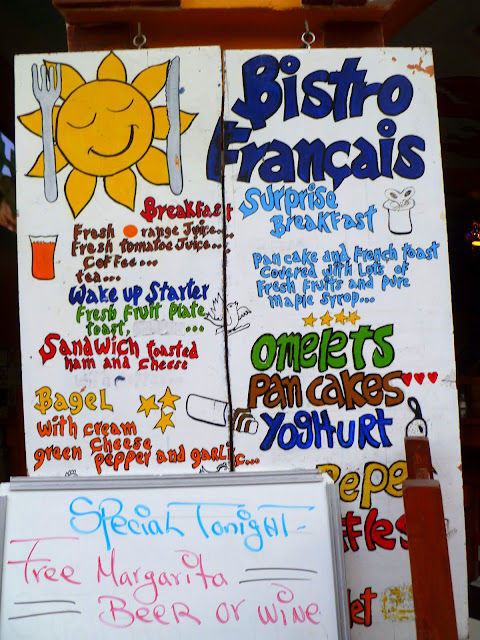 Bistro
Français
Breakfast
Fresh orange Juice...
Fresh tomatoe Juice...
Coffee...
tea...
Wake up Starter
Fresh Fruit Plate
toast, ...
Sandwich toasted
ham and cheese
Bagel
with cream
green cheese
pepper and garlic...
Surprise
Breakfast
Pan cake and French toast
Covered with Lots of
Fresh Fruits and pure
maple Syrop...
Omelets
Pan cakes
Yoghurt
Special Tonight-
Free Margarita
Beer or wine